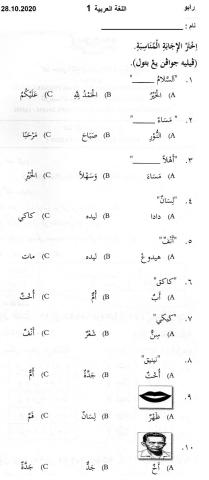 رابو اللغة العربية 1 28.10.2020
نام :
اِخْتَرِ الإِجَابَةَ المُنَاسِبَةَ.
(ڤيليه جواڤن يڠ بتول).
١. "السَّلَامُ ______"
A) الخَيْرُ B) الحَمْدُ لِلّٰهِ C) عَلَيْكُمْ
٢. "مَسَاءَ ______"
A) النُّوْرِ B) صَبَاحَ C) مَرْحَبًا
٣. "أَهْلًا ______"
A) مَسَاءَ B) وَسَهْلًا C) الخَيْرِ
٤. "لِسَانٌ"
A) دادا B) ليده C) كاكي
٥. "أَنْفٌ"
A) هيدوڠ B) ليده C) مات
٦. "كاكق"
A) أَبٌ B) أُمٌّ C) أُخْتٌ
٧. "ݢيݢي"
A) سِنٌّ B) شَعْرٌ C) أَنْفٌ
٨. "نينيق"
A) أُخْتٌ B) جَدَّةٌ C) أُمٌّ
٩.
A) ظَهْرٌ B) لِسَانٌ C) فَمٌ
١٠.
A) أَخٌ B) جَدٌّ C) جَدَّةٌ